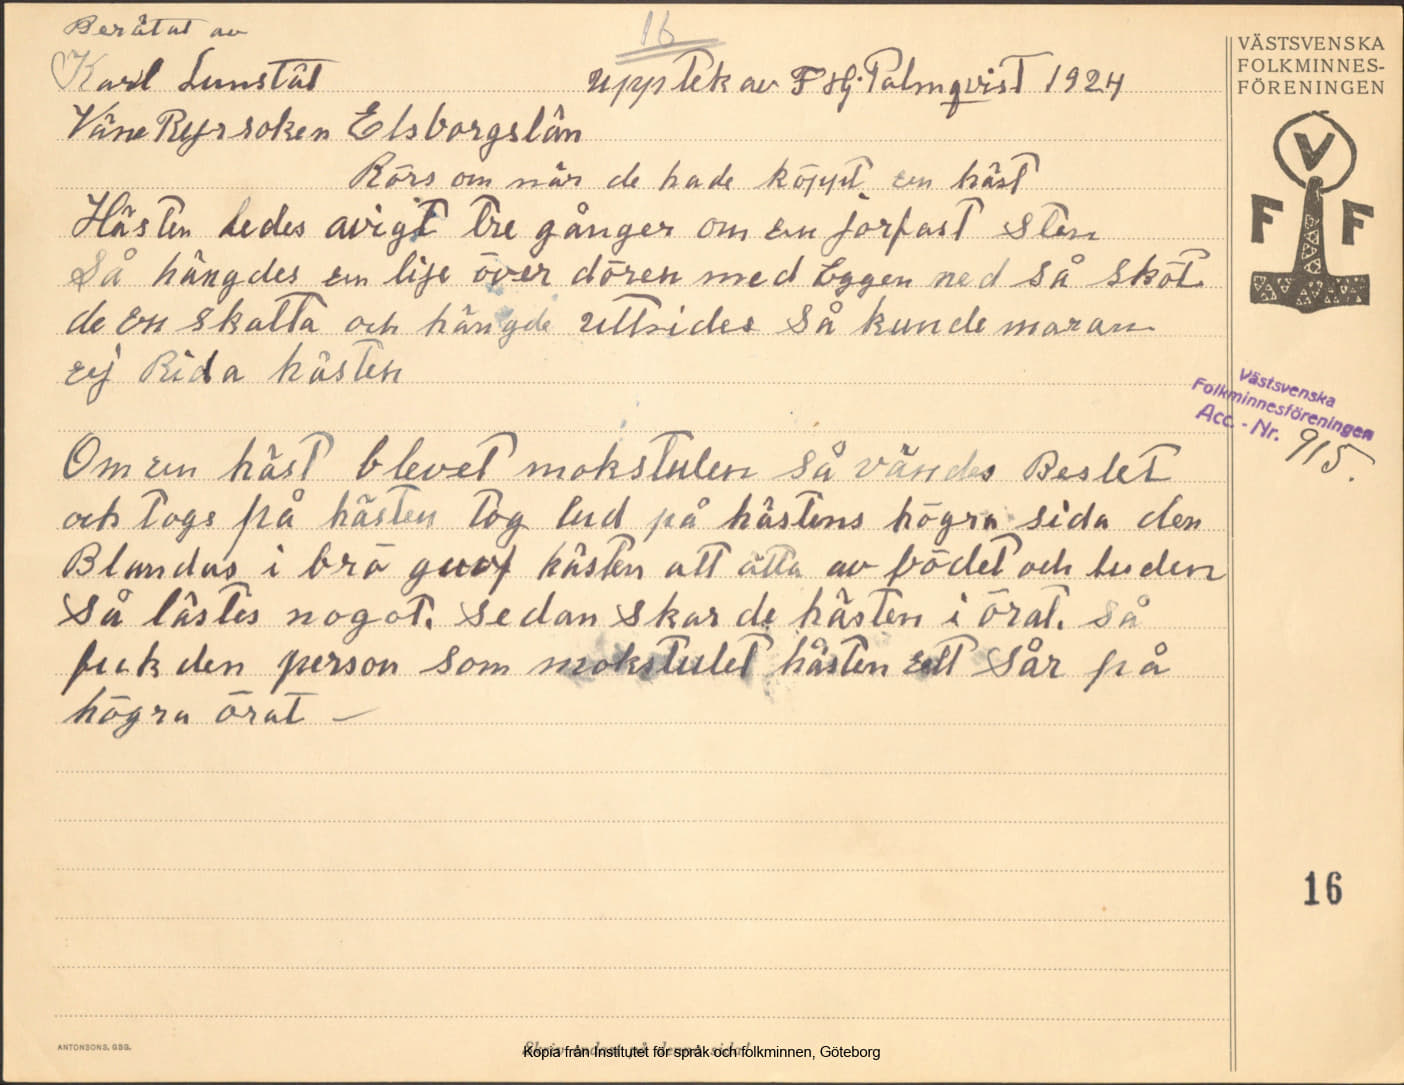 Berätat av
16
Karl Lunstät
Upptek av F Hj. Palmqvist 1924
Väne Ryr soken Elsborgslän
Rörs om när de hade köppt en häst
Hästen ledes avigt tre gånger om en jorfast Sten
Så hängdes en lije över dören med Eggen ned så sköt
de en skatta och hängde uttsides så kunde maran
ej Rida hästen
Om en häst blevet mokstulen så vändes Beslet
och togs på hästen tog lud på hästens högra sida den
Blandas i brö hästen att ätta av bödet och luden
Så lästes nogot. sedan skar de hästen i örat. Så
fick den person som mokstulet hästen ett Sår på
högra örat –
VÄSTSVENSKA
FOLKMINNES-
FÖRENINGEN
V
F F
Västsvenska
Folkminnesföreningen
Acc. - Nr. 915.
16
ANTONSONS, GBG.
Kopia från Institutet för språk och folkminnen, Göteborg